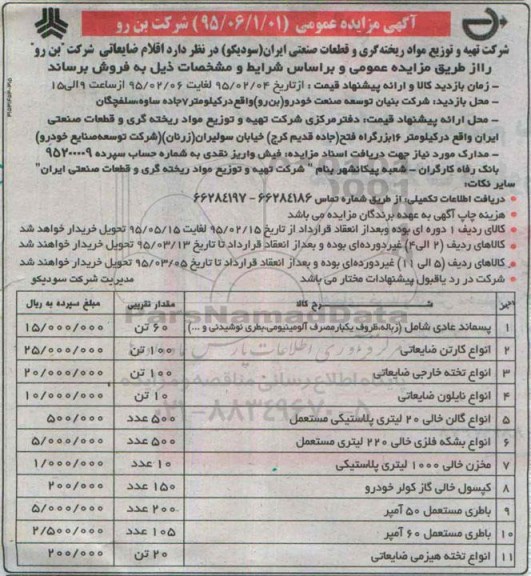 آگهی مزایده عمومی (۹۵/۰۶/۱/۰۱) شرکت بن رو
شرکت تهیه و توزیع مواد ریخته گری و قطعات صنعتی ایران(سودیکو) در نظر دارد اقلام ضایعاتی شرکت "بن رو"
رااز طریق مزایده عمومی و براساس شرایط و مشخصات ذیل به فروش برساند
- زمان بازدید کالا و ارائه پیشنهاد قیمت : ازتاریخ ۹۵/۰۲/۰۴ لغایت ۹۵/۰۲/۰۶ ازساعت ۹الی۱۵
- محل بازدید: شرکت بنیان توسعه صنعت خودرو(بن‌رو)واقع‌درکیلومتر۷جاده ساوه‌سلفچگان
- محل ارائه پیشنهاد قیمت: دفترمرکزی شرکت تهیه و توزیع مواد ریخته گری و قطعات صنعتی
ایران واقع درکیلومتر ۱۶بزرگراه فتح(جاده قدیم کرج) خیابان سولیران(زرنان)(شرکت توسعه‌صنایع خودرو)
- مدارک مورد نیاز جهت دریافت اسناد مزایده: فیش واریز نقدی به شماره حساب سپرده ۹۵۲۰۰۰۰۹
بانک رفاه کارگران - شعبه پیکانشهر بنام " شرکت تهیه و توزیع مواد ریخته گری و قطعات صنعتی ایران"
سایر نکات:
- دریافت اطلاعات تکمیلی: از طریق شماره تماس ۶۶۲۸۴۱۸۶ - ۶۶۲۸۴۱۹۷
هزینه چاپ آگهی به عهده برندگان مزایده می باشد
کالای ردیف ۱ دوره ای بوده وبعداز انعقاد قرارداد از تاریخ ۹۵/۰۲/۱۵ لغایت ۹۵/۰۵/۱۵ تحویل خریدار خواهد شد
کالاهای ردیف (۲ الی۴) غیردوره‌ای بوده و بعداز انعقاد قرارداد تا تاریخ ۹۵/۰۳/۱۳ تحویل خریدار خواهند شد
کالاهای ردیف (۵ الی ۱۱) غیردوره‌ای بوده و بعداز انعقاد قرارداد تا تاریخ ۹۵/۰۳/۰۵ تحویل خریدار خواهند شد
شرکت در رد یاقبول پیشنهادات مختار می باشد
مدیریت شرکت سودیکو
شرح کالا مقدار تقریبی مبلغ سپرده به ریال
۱ پسماند عادی شامل (زباله،ظروف یکبارمصرف آلومینیومی،بطری نوشیدنی و ...) ۶۰ تن ۱۵/۰۰۰/۰۰۰
۲ انواع کارتن ضایعاتی ۱۰۰ تن ۲۵/۰۰۰/۰۰۰
۳ انواع تخته خارجی ضایعاتی ۱۰۰ تن ۲۰/۰۰۰/۰۰۰
۴ انواع نایلون ضایعاتی ۱۰ تن ۱۰/۰۰۰/۰۰۰
۵ انواع گالن خالی ۲۰ لیتری پلاستیکی مستعمل ۵۰۰ عدد ۵۰۰/۰۰۰
۶ انواع بشکه فلزی خالی ۲۲۰ لیتری مستعمل ۵۰۰ عدد ۵/۰۰۰/۰۰۰
۷ مخزن خالی ۱۰۰۰ لیتری پلاستیکی ۱۰ عدد ۱/۰۰۰/۰۰۰
۸ کپسول خالی گاز کولر خودرو ۱۵۰ عدد ۲۰۰/۰۰۰
۹ باطری مستعمل ۵۰ آمپر ۲۰۰ عدد ۵/۰۰۰/۰۰۰
۱۰ باطری مستعمل ۶۰ آمپر ۱۰۵ عدد ۲/۵۰۰/۰۰۰
۱۱ انواع تخته هیزمی ضایعاتی ۲۰ تن ۲۰۰/۰۰۰
ParsNamadData
پایگاه اطلاع رسانی مناقصه و مزایده
۰۲۱-۸۸۳۴۹۶۷۰-۵